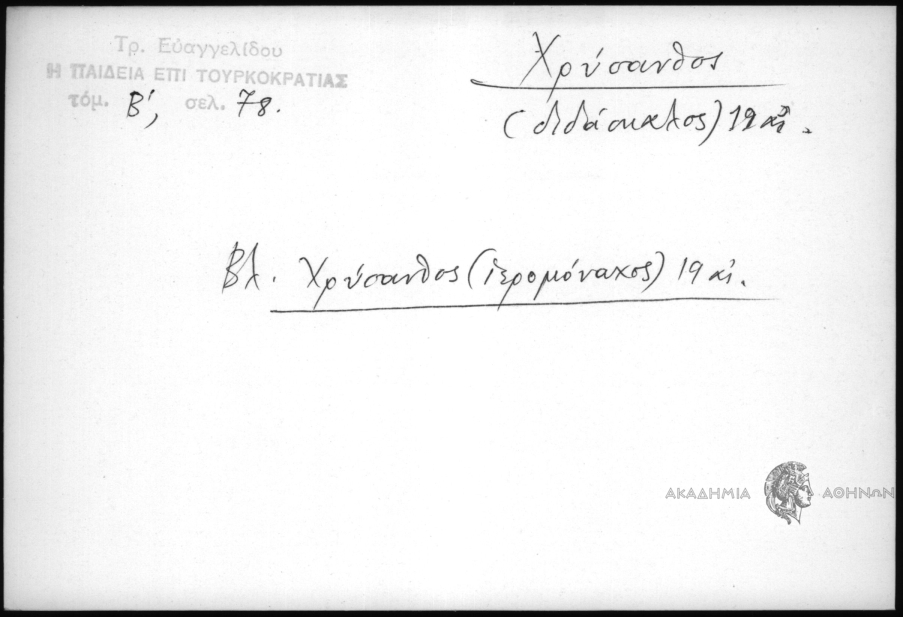 Τρ. Εὐαγγελίδου
Η ΠΑΙΔΕΙΑ ΕΠΙ ΤΟΥΡΚΟΚΡΑΤΙΑΣ
τόμ. Β', σελ. 78.
Χρύσανθος
(διδάσκαλος) 19 αἰ.
Βλ. Χρύσανθος (ἱερομόναχος) 19 αἰ.
ΑΚΑΔΗΜΙΑ ΑΘΗΝΩΝ